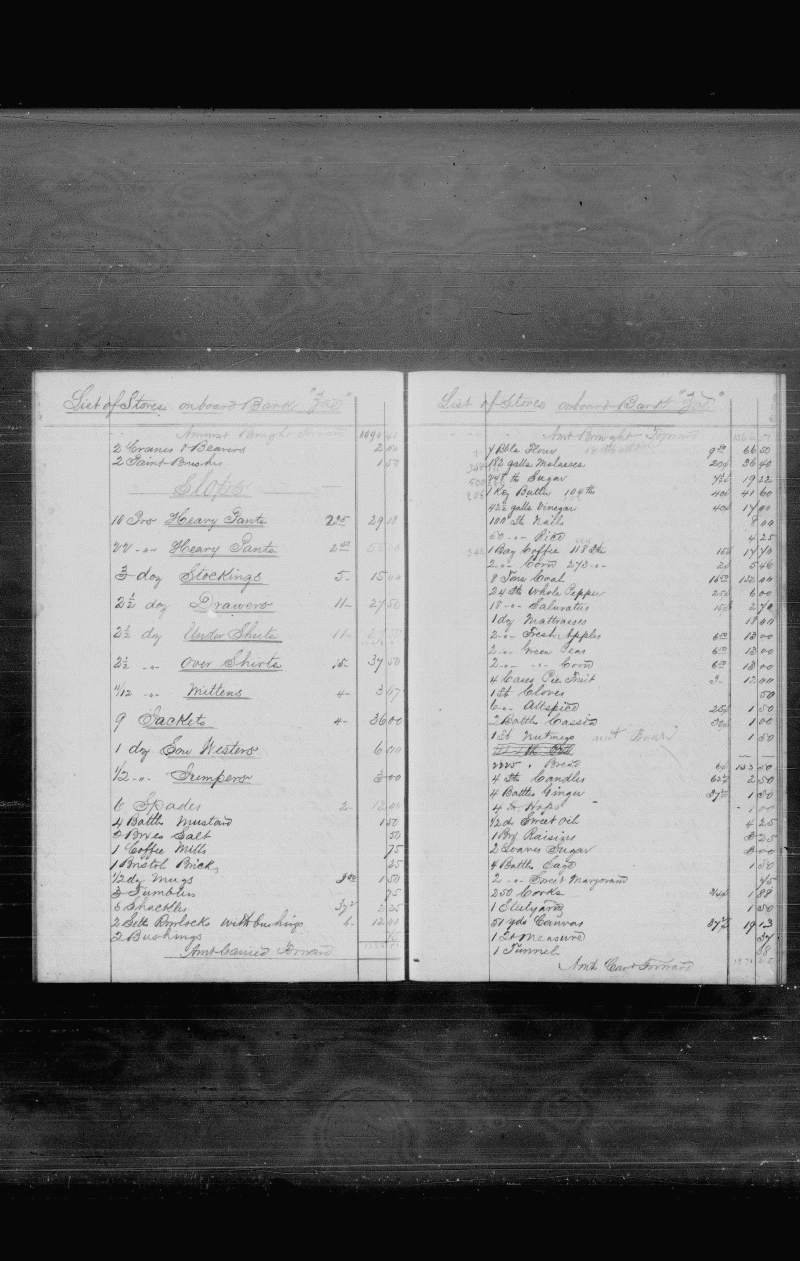 List of Stores onboard Bark
Amount Brought Forward 1090
2 Cranes & Bearers 2
2 Paint Brushes 1 50
Slops
10 Prs Heavy Pants 29
22 -"- Heavy Pants
3 doz Stockings 5- 15 00
2½ doz Drawers 11- 27 50
2½ doz Under Shirts 11-
2½ -"- Over Shirts 15- 37 50
11/12 -"- Mittens 4- 3 67
9 Jackets 4- 36 00
1 doz Sou Westers 6 00
1/2 -"- Jumpers 3 00
6 Spades 2- 12 00
4 Bottls Mustard 1 50
Boxes Salt 50
1 Coffee Mills 75
1 Bristol Brick 25
1/2 dz Mugs 3 00 1 50
3 Tumblers 75
6 Shackles 37½ 2 25
2 Setts Rowlocks with bushings 6- 12 00
2 Bushings
Amt Carried Forward
List of Stores onboard Bark
Amt Brought Forward
7 Bbls Flour 9 50 66 50
182 galls Molasses 20¢ 36 40
lb Sugar 19 22
1 Keg Butter 104 lb 40¢ 41 60
42½ galls Vinegar 40¢ 17 00
100 lb Nails 8 00
50 -"- Rice 4 25
1 Bag Coffee 118 lb 15¢ 17 70
2 -"- Corn 273 -"- 2¢ 5 46
8 Tons Coal
24 lb Whole Pepper 25¢ 6 00
18 -"- Saluratus 15¢ 2 70
1 doz Mattrasses 18 00
2 -"- Fresh Apples 6 50 13 00
2 -"- Green Peas 6 50 13 00
2 -"- -"- Corn 6 50 13 00
4 Cases Pie Fruit 3- 12 00
1 lb Cloves 50
6 -"- Allspice 25¢ 1 50
2 Bottls Cassia 50¢ 1 00
1 lb Nutmegs 1 50
2225 " Bread 6¢ 133 50
4 lb Candles 62½ 2 50
4 Bottls Ginger 37½ 1 50
4 lb Hops - 1 00
1/2 dz Sweet Oil 4 25
1 Box Raisins 25
2 Loaves Sugar 00
4 Bottls Sage 1 50
2 -"- Sweet Marjoram 75
250 Corks 1 88
1 Stulyard 1 50
51 yds Canvas 37½ 19 13
1 2qt Measure 37
1 Tunnel 38
Amt Card Forward